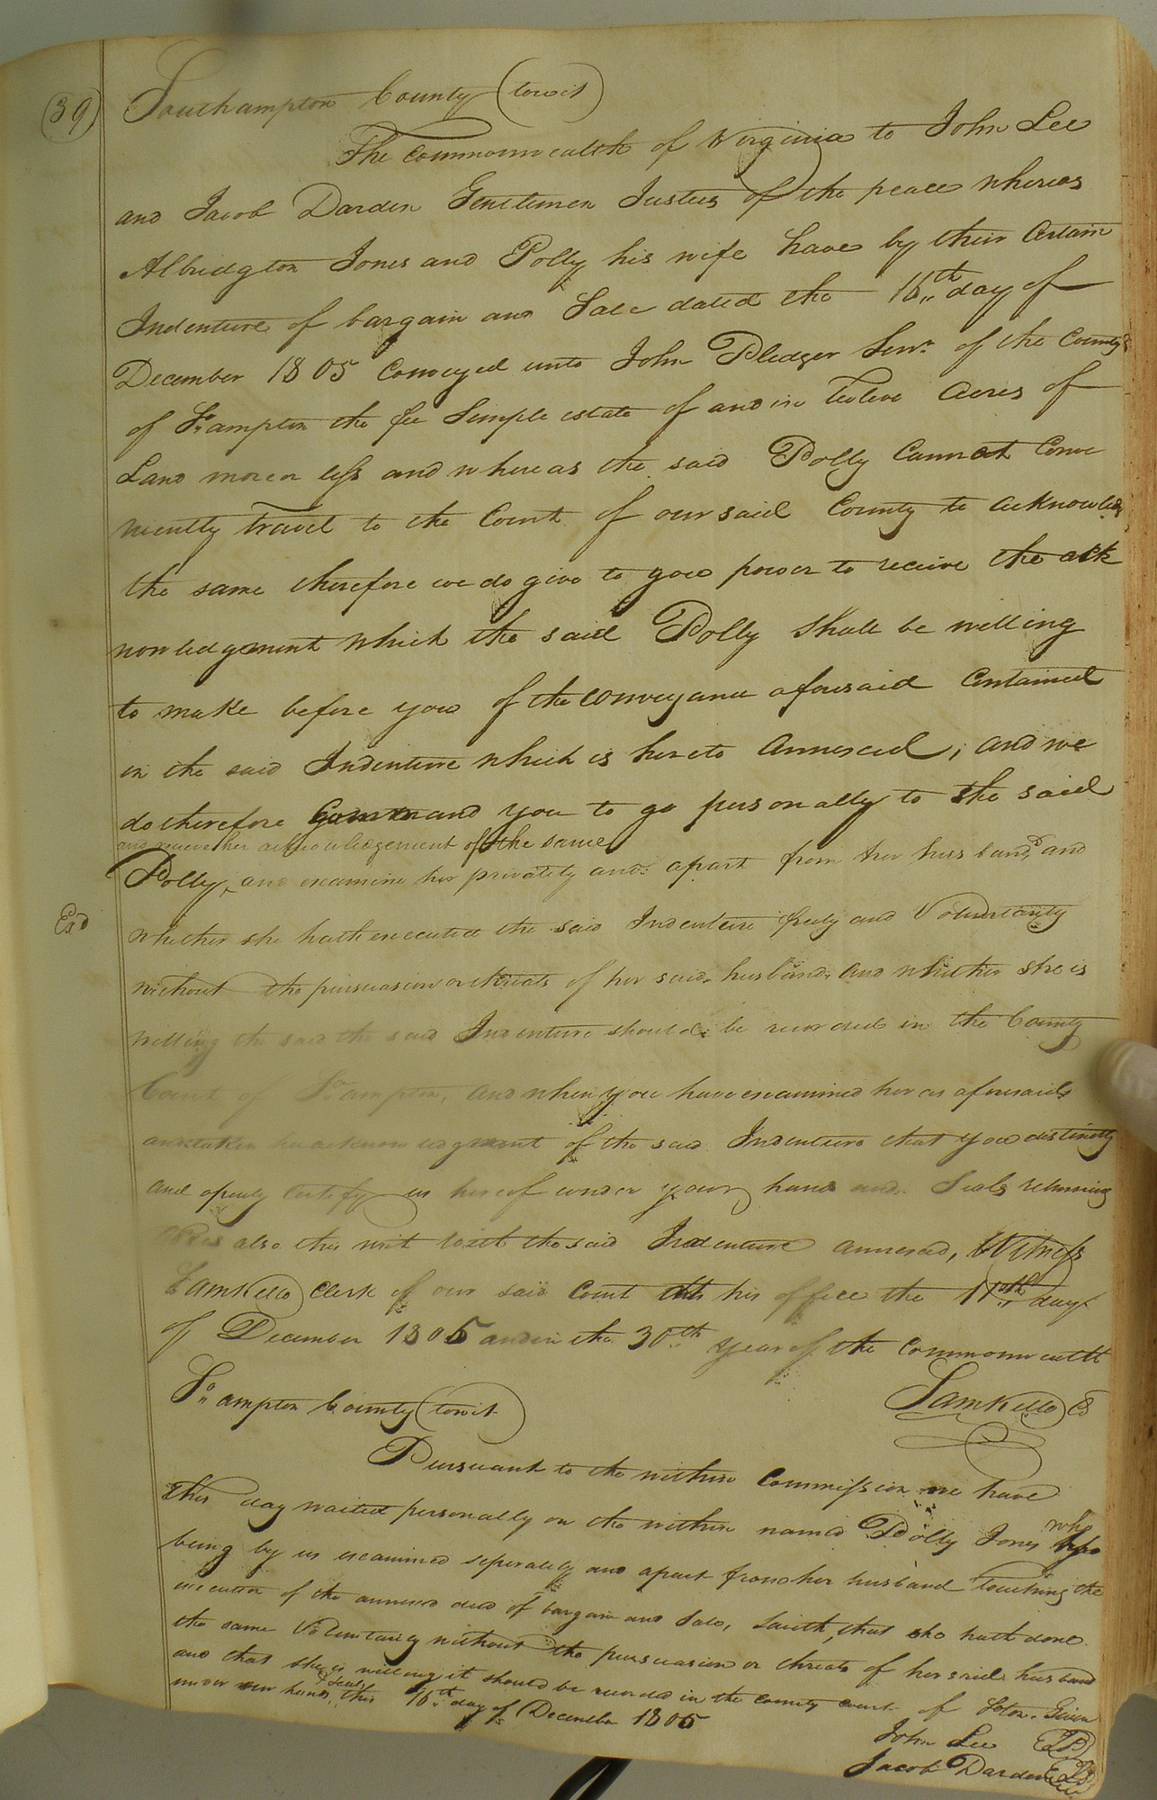 39
Southampton County (towit)
The Commonwealth of Virginia to John Lee
and Jacob Darden Gentlemen Justees of the peace whereas
Albridgton Jones and Polly his wife have by their Certain
Indenture of bargain and Sale dated the 16th day of
December 1805 Conveyed unto John Pledger Senr. of the County
of So.ampton the fee Simple estate of and in twelve Acres of
Land more or less and whereas the said Polly Cannot Conve
niently travel to the Court of our said County to acknowledg
the same therefore we do give to you power to receive the ack
nowledgement which the said Polly shall be willing
to make before you of the conveyance aforesaid Contained
in the said Indenture which is hereto Annexed, and we
do therefore Command you to go personally to the said
and receive her acknowledgement of the same
Polly, and examine her privately and apart from her husband, and
Exd
whether she hath executed the said Indenture freely and Voluntarily
without the persuasion or threats of her said husband and whether she is
willing the said the said Indenture should be recorded in the County
Court of So.ampton, and when you have examined her as aforesaid
and taken her acknowledgment of the said Indenture that you distinctly
and openly Certify us hereof under your hand and Seals returning
also this writ with the said Indenture annexed, Witness
Saml Kello Clerk of our said Court at his office the 11th day
of December 1805 and in the 30th year of the Commonwealth
Saml Kello
So.ampton County (towit)
Pursuant to the within Commission we have
this day waited personally on the within named Polly Jones who
being by us examined seperately and apart from her husband touching the
execution of the annexed deed of bargain and Sale, saith, that she hath done
the same Voluntarily without the persuasion or threats of her said husband
and that she is willing it should be recorded in the County Court of Soton. Given
under our hands & Seals, this 16th day of December 1805
John Lee
Jacob Darden